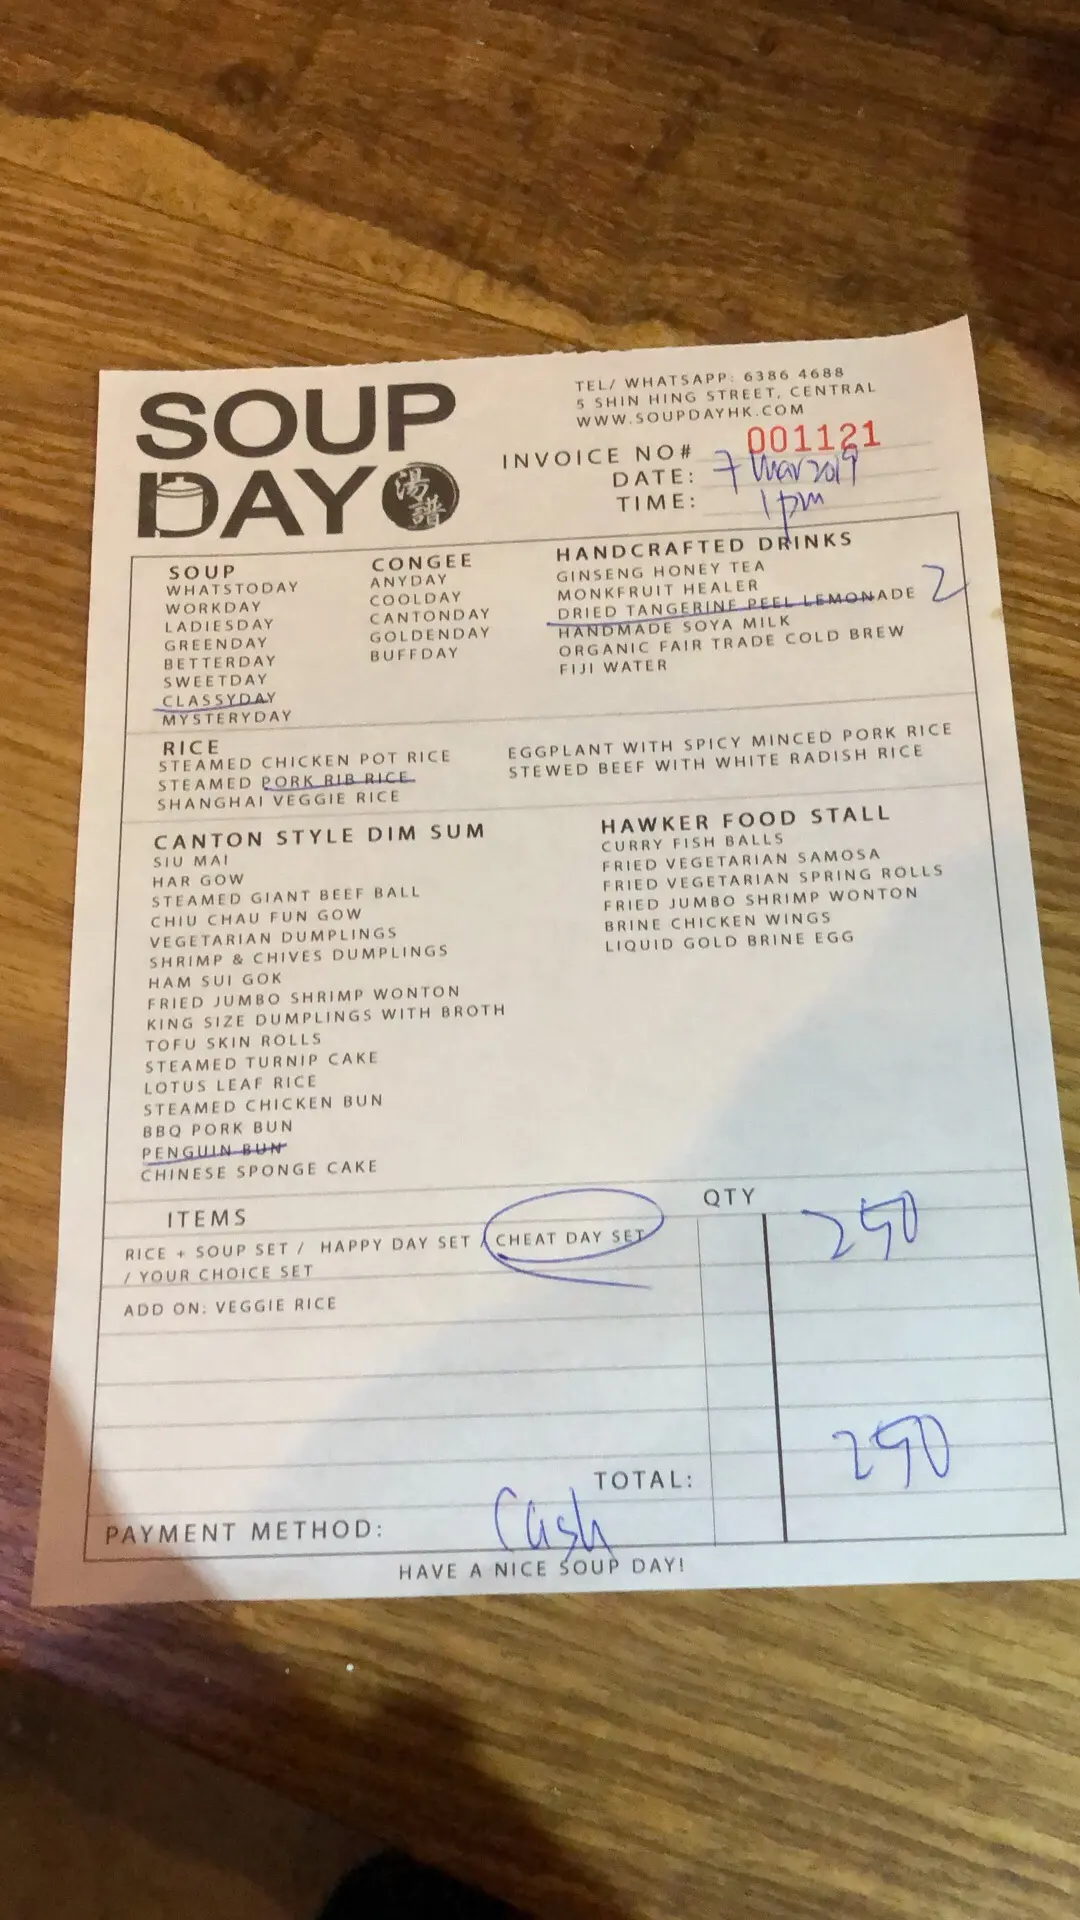 SOUP
DAY 湯譜
TEL/ WHATSAPP: 6386 4688
5 SHIN HING STREET, CENTRAL
WWW.SOUPDAYHK.COM
INVOICE NO# 001121
DATE: 7 Mar 2019
TIME: 1pm
SOUP
WHATSTODAY
WORKDAY
LADIESDAY
GREENDAY
BETTERDAY
SWEETDAY
CLASSYDAY
MYSTERYDAY
CONGEE
ANYDAY
COOLDAY
CANTONDAY
GOLDENDAY
BUFFDAY
HANDCRAFTED DRINKS
GINSENG HONEY TEA
MONKFRUIT HEALER
DRIED TANGERINE PEEL LEMONADE 2
HANDMADE SOYA MILK
ORGANIC FAIR TRADE COLD BREW
FIJI WATER
RICE
STEAMED CHICKEN POT RICE
STEAMED PORK RIB RICE
SHANGHAI VEGGIE RICE
EGGPLANT WITH SPICY MINCED PORK RICE
STEWED BEEF WITH WHITE RADISH RICE
CANTON STYLE DIM SUM
SIU MAI
HAR GOW
STEAMED GIANT BEEF BALL
CHIU CHAU FUN GOW
VEGETARIAN DUMPLINGS
SHRIMP & CHIVES DUMPLINGS
HAM SUI GOK
FRIED JUMBO SHRIMP WONTON
KING SIZE DUMPLINGS WITH BROTH
TOFU SKIN ROLLS
STEAMED TURNIP CAKE
LOTUS LEAF RICE
STEAMED CHICKEN BUN
BBQ PORK BUN
PENGUIN BUN
CHINESE SPONGE CAKE
HAWKER FOOD STALL
CURRY FISH BALLS
FRIED VEGETARIAN SAMOSA
FRIED VEGETARIAN SPRING ROLLS
FRIED JUMBO SHRIMP WONTON
BRINE CHICKEN WINGS
LIQUID GOLD BRINE EGG
ITEMS QTY
RICE + SOUP SET / HAPPY DAY SET / CHEAT DAY SET 250
/ YOUR CHOICE SET
ADD ON: VEGGIE RICE
TOTAL: 250
PAYMENT METHOD: Cash
HAVE A NICE SOUP DAY!